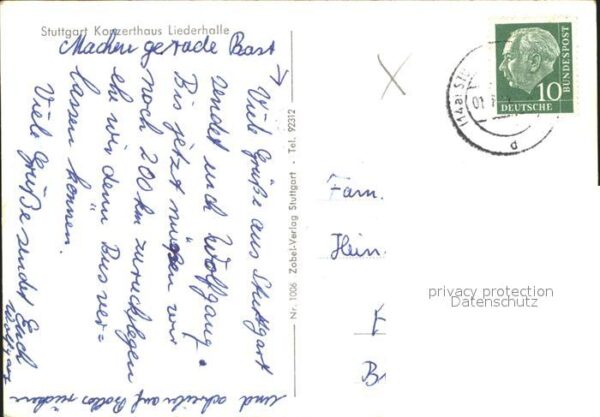 Stuttgart Konzerthaus Liederhalle
Machen gerade Rast
Viele Grüße aus Stuttgart
sendet euch Wolfgang.
Bis jetzt müßen wir
noch 200 km zurücklegen
ehe wir denn Bus ver-
lassen können.
Viele Grüße sendet Euch
Wolfgang
und schreibe auf
Nr. 1006 Zobel-Verlag Stuttgart - Tel. 92312
DEUTSCHE
BUNDESPOST
10
(14a) ST
01
d
Fam.
Hein
B
privacy protection
Datenschutz